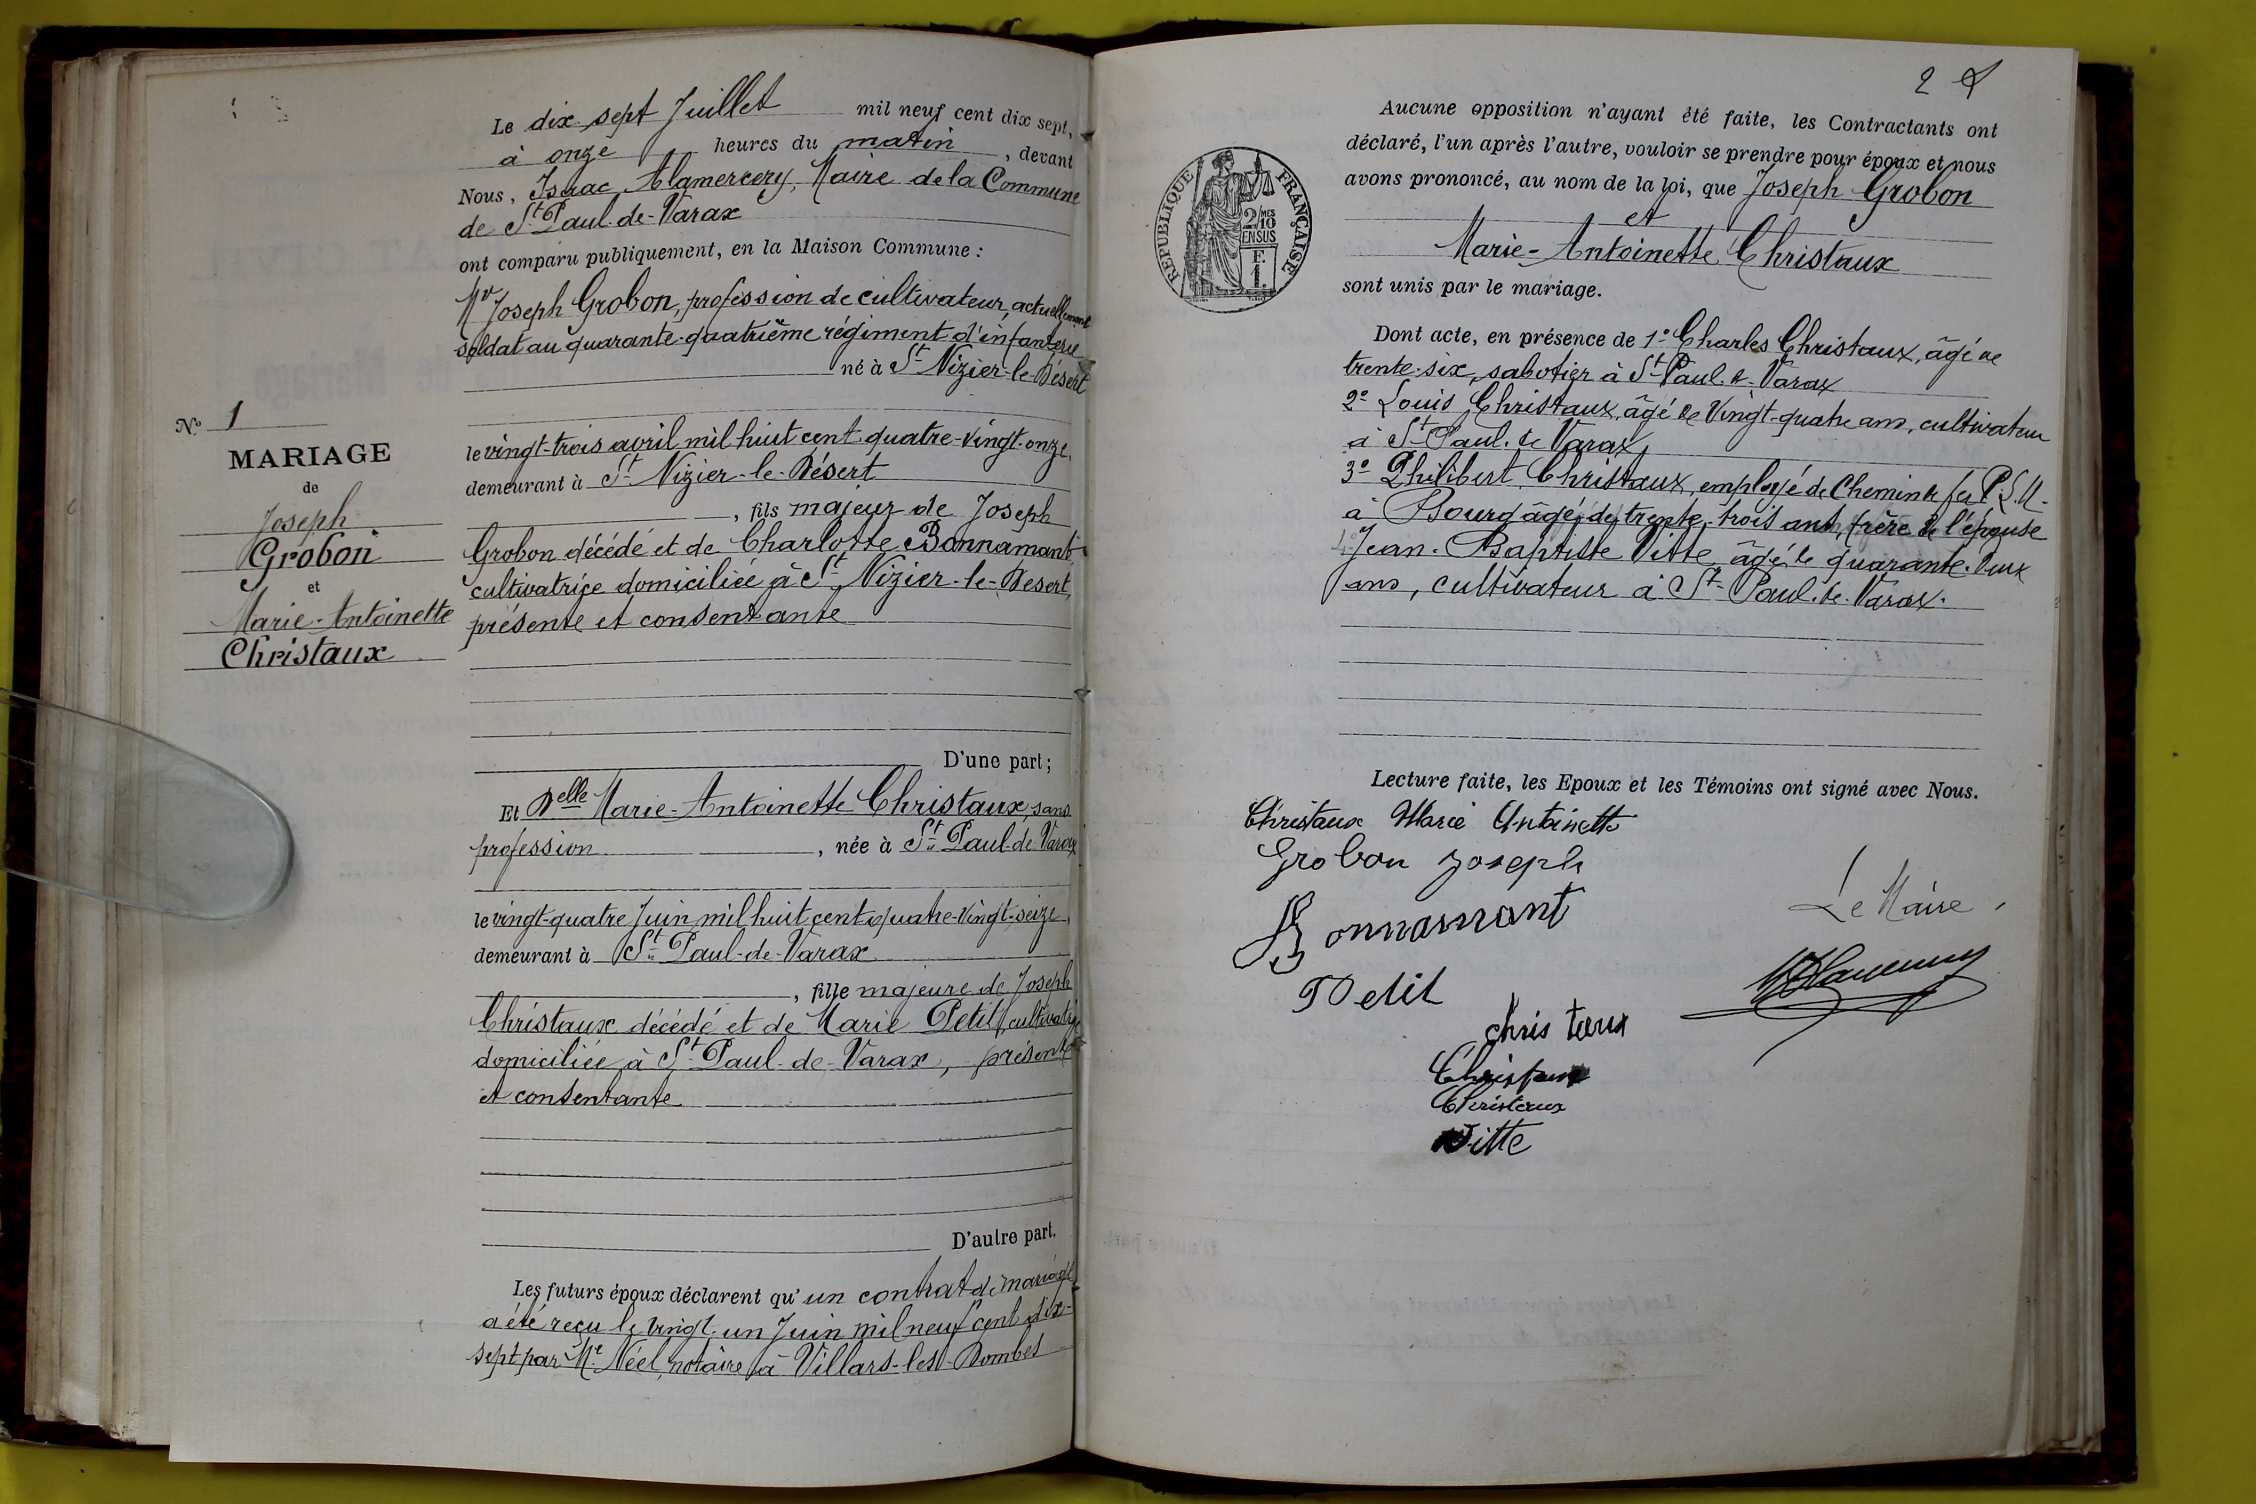 Le dix sept Juillet mil neuf cent dix sept,
à onze heures du matin, devant
Nous, Isaac Alamercery, Maire de la Commune
de St Paul-de-Varax
ont comparu publiquement, en la Maison Commune :
Mr Joseph Grobon, profession de cultivateur, actuellement
soldat au quarante-quatrième régiment d'infanterie
né à St Nizier-le-Désert
le vingt-trois avril mil huit cent quatre-vingt-onze,
demeurant à St Nizier-le-Désert
, fils majeur de Joseph
Grobon décédé et de Charlotte Bonnamant
cultivatrice domiciliée à St Nizier-le-Desert,
présente et consentante
D'une part ;
Et Delle Marie-Antoinette Christaux, sans
profession , née à St Paul-de-Varax
le vingt-quatre Juin mil huit cent quatre-vingt-seize,
demeurant à St Paul-de-Varax
, fille majeure de Joseph
Christaux décédé et de Marie Petit cultivatrice
domiciliée à St Paul-de-Varax, présente
et consentante
D'autre part.
Les futurs époux déclarent qu'un contrat de mariage
a été reçu le vingt-un Juin mil neuf cent dix-
sept par Me Néel, notaire à Villars-les-Dombes
No 1
MARIAGE
de
Joseph
Grobon
et
Marie-Antoinette
Christaux
2
Aucune opposition n'ayant été faite, les Contractants ont
déclaré, l'un après l'autre, vouloir se prendre pour époux et nous
avons prononcé, au nom de la loi, que Joseph Grobon
et
Marie-Antoinette Christaux
sont unis par le mariage.
Dont acte, en présence de 1° Charles Christaux, âgé de
trente-six, sabotier à St Paul-de-Varax
2° Louis Christaux, âgé de Vingt-quatre ans, cultivateur
à St Paul-de Varax,
3° Philibert Christaux, employé de Chemin de fer P.L.M.
à Bourg âgé de trente-trois ans, frère de l'épouse
4° Jean-Baptiste Vitte âgé de quarante-deux
ans, cultivateur à St-Paul-de-Varax.
Lecture faite, les Epoux et les Témoins ont signé avec Nous.
Christaux Marie Antoinette
Grobon Joseph
Bonnamant
Petit
Christaux
Christaux
Christaux
Vitte
Le Maire,
RÉPUBLIQUE FRANÇAISE
2/10 MES
EN SUS
F.
1.